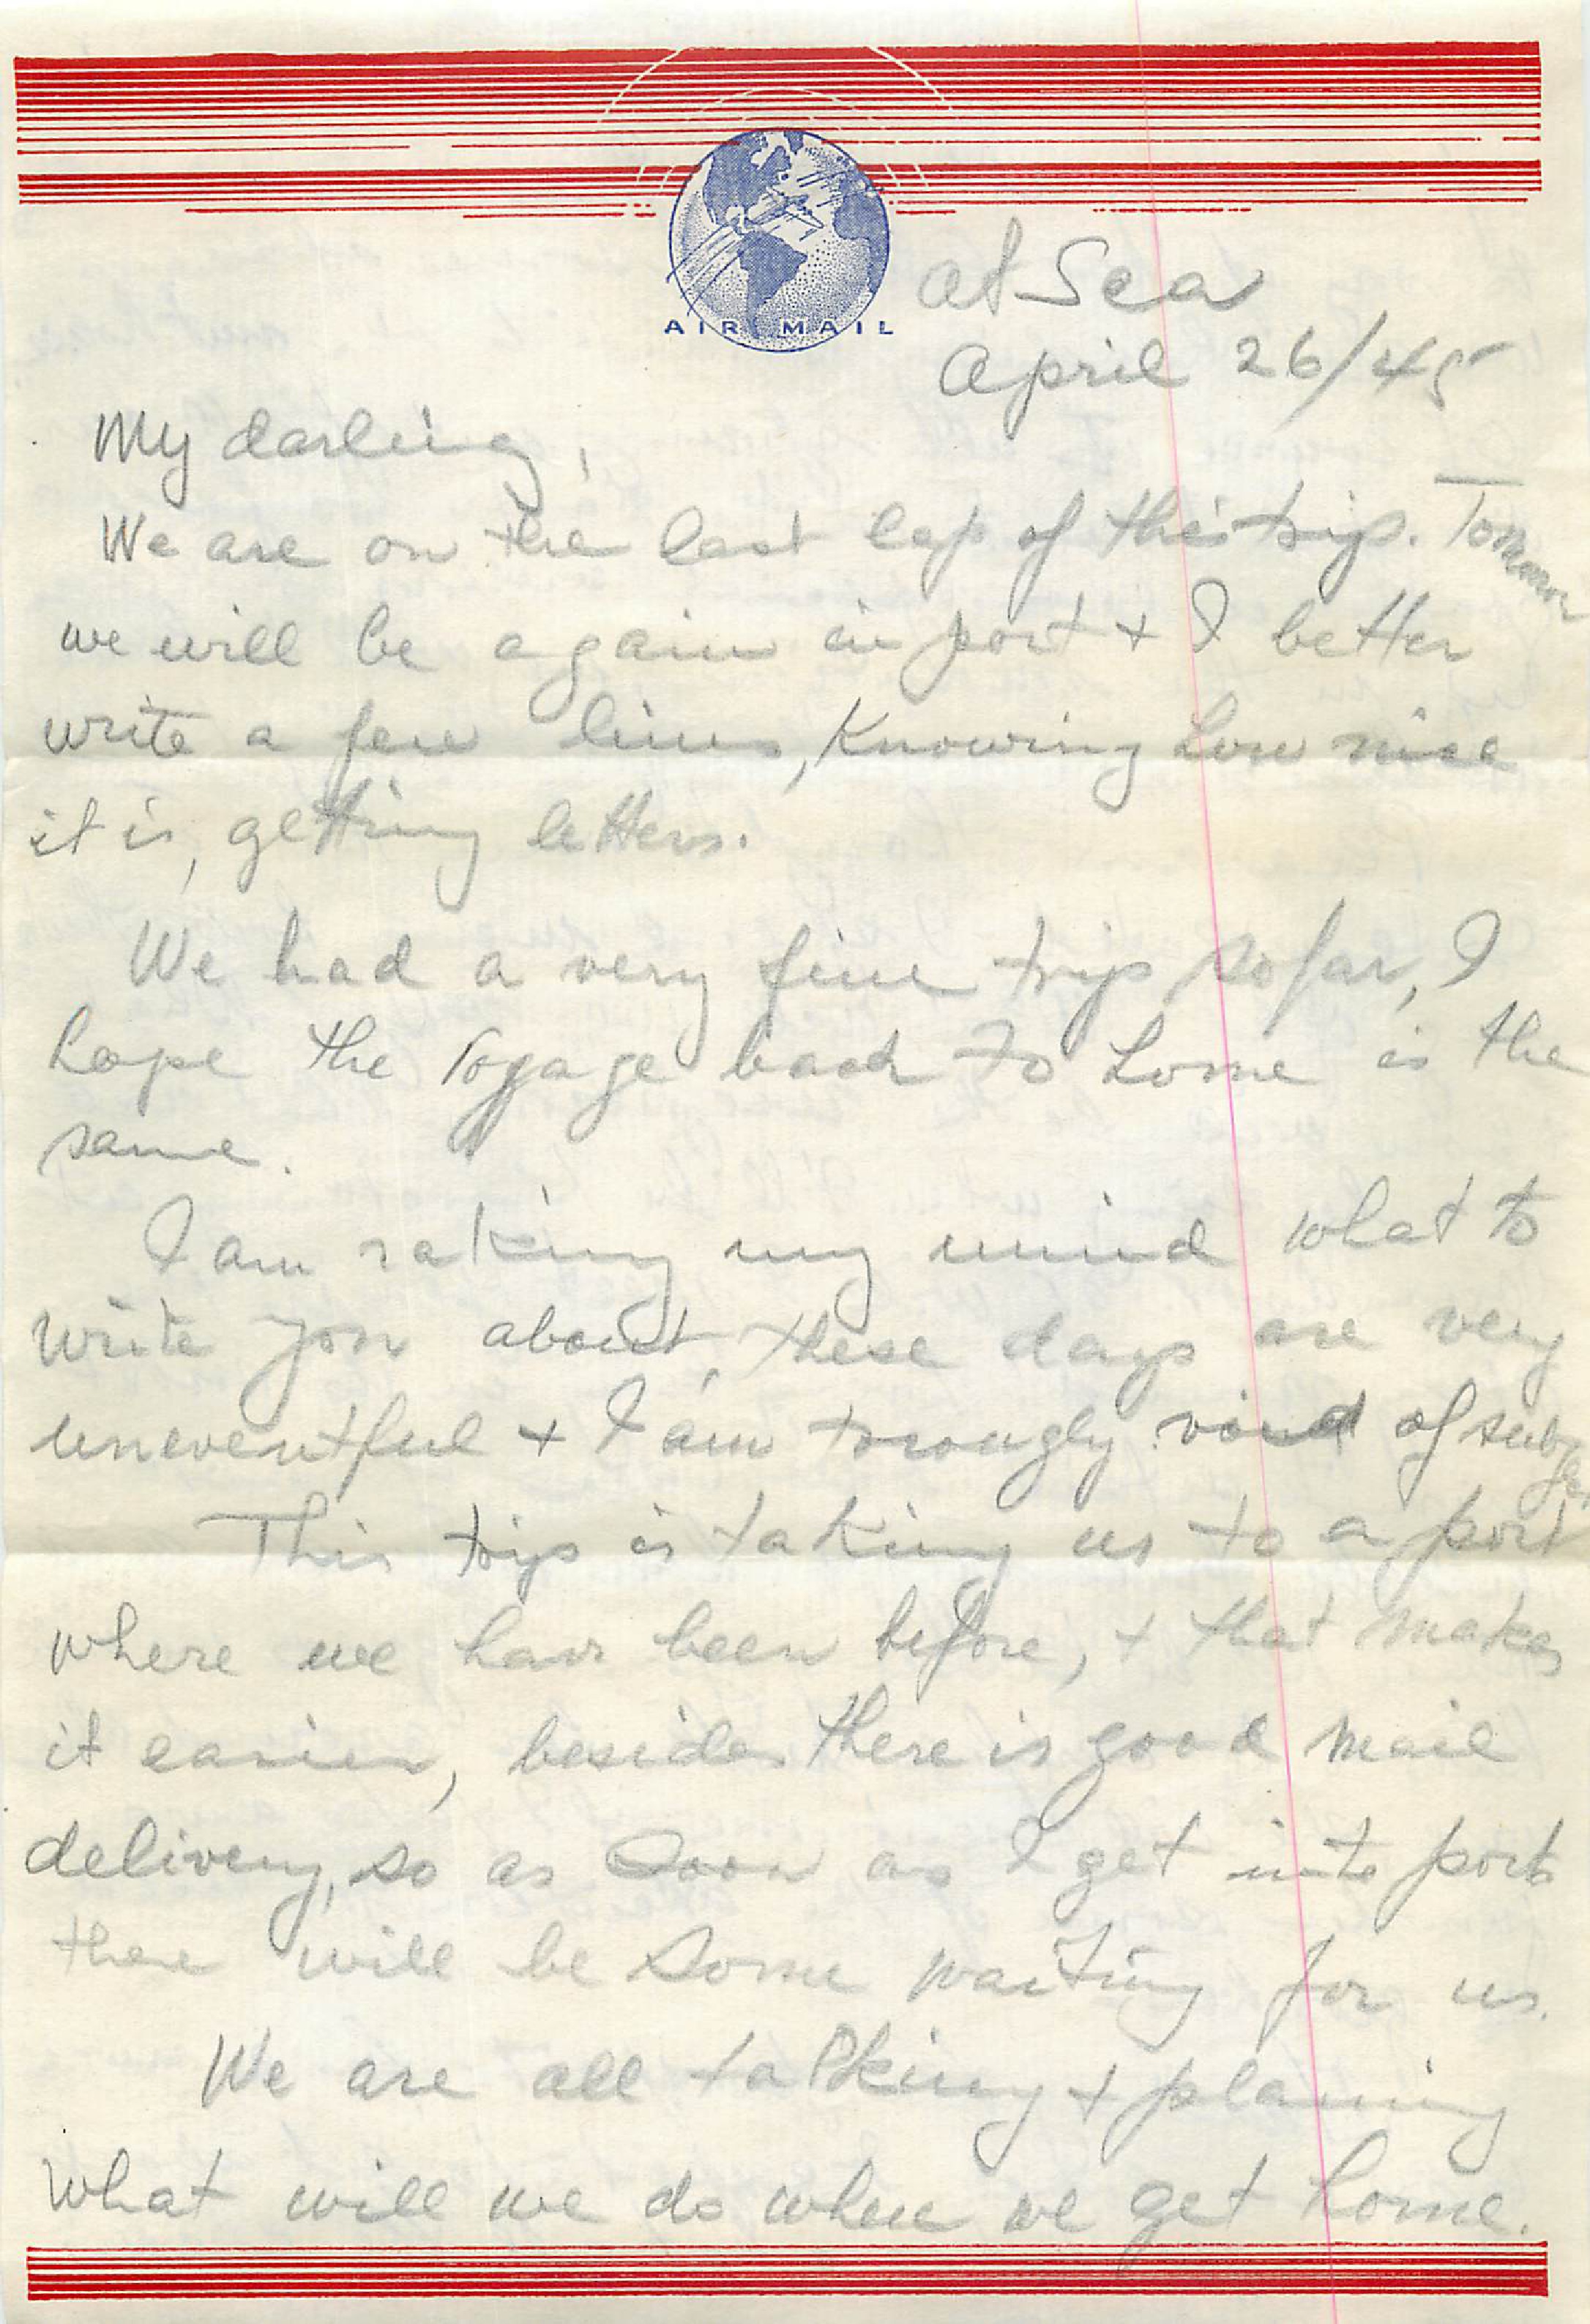 AIR MAIL
at Sea
April 26/45
My darling,
We are on the last lap of this trip. Tommor
we will be again in port + I better
write a few lines, Knowing how nice
it is, getting letters.
We had a very fine trip so far, I
hope the voyage back to home is the
same.
I am raking my mind what to
write you about, these days are very
uneventful + I am trougly void of
This trip is taking us to a port
where we have been before, + that makes
it easier, besides there is good mail
delivery, so as soon as I get into port
there will be some waiting for us.
We are all talking + planing
what will we do when we get home.